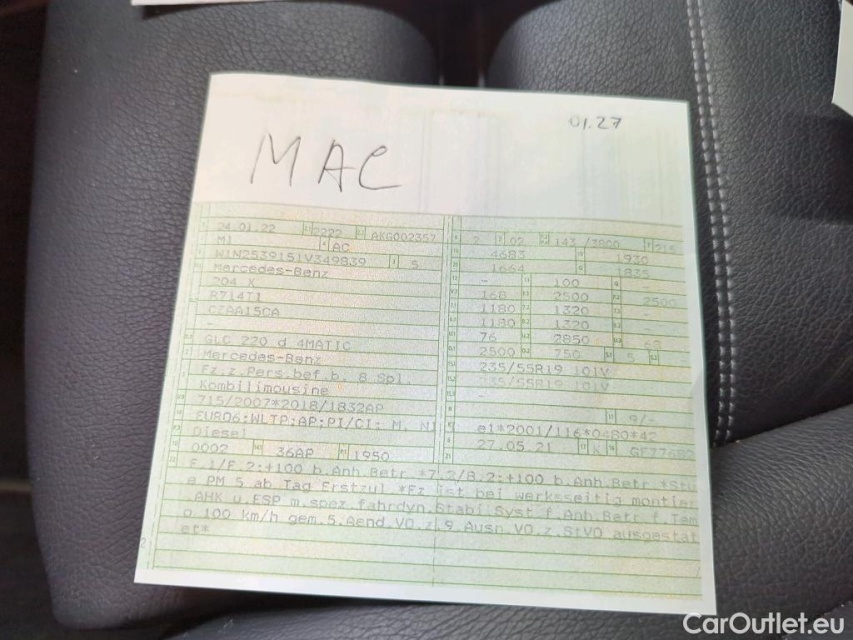 01.27
MAC
24.01.22 2222 AKG002357 2 02 143 /3800 215
M1 AC 4683 1930
W1N2539151V349839 5 1664 1835
Mercedes-Benz - 100 -
204 X 168 2500 2500
R714T1 1180 1320 -
CZAA15CA 1180 1320 -
- 76 2850 69
GLC 220 d 4MATIC 2500 750 5 -
Mercedes-Benz 235/55R19 101V
Fz.z.Pers.bef.b. 8 Spl. 235/55R19 101V
Kombilimousine
715/2007*2018/1832AP 9/-
EURO6;WLTP;AP;PI/CI; M, N1 e1*2001/116*0480*42
Diesel 27.05.21 K
0002 36AP 1950
F.1/F.2:+100 b.Anh.Betr.*7.2/8.2:+100 b.Anh.Betr.*Stu
e PM 5 ab Tag Erstzul.*Fz ist bei werksseitig montie
.AHK u.ESP m.spez.fahrdyn.Stabi.Syst.f.Anh.Betr.f.Tem
o 100 km/h gem.5.Aend.VO.z.9.Ausn.VO.z.StVO ausgestat
et*
CarOutlet.eu